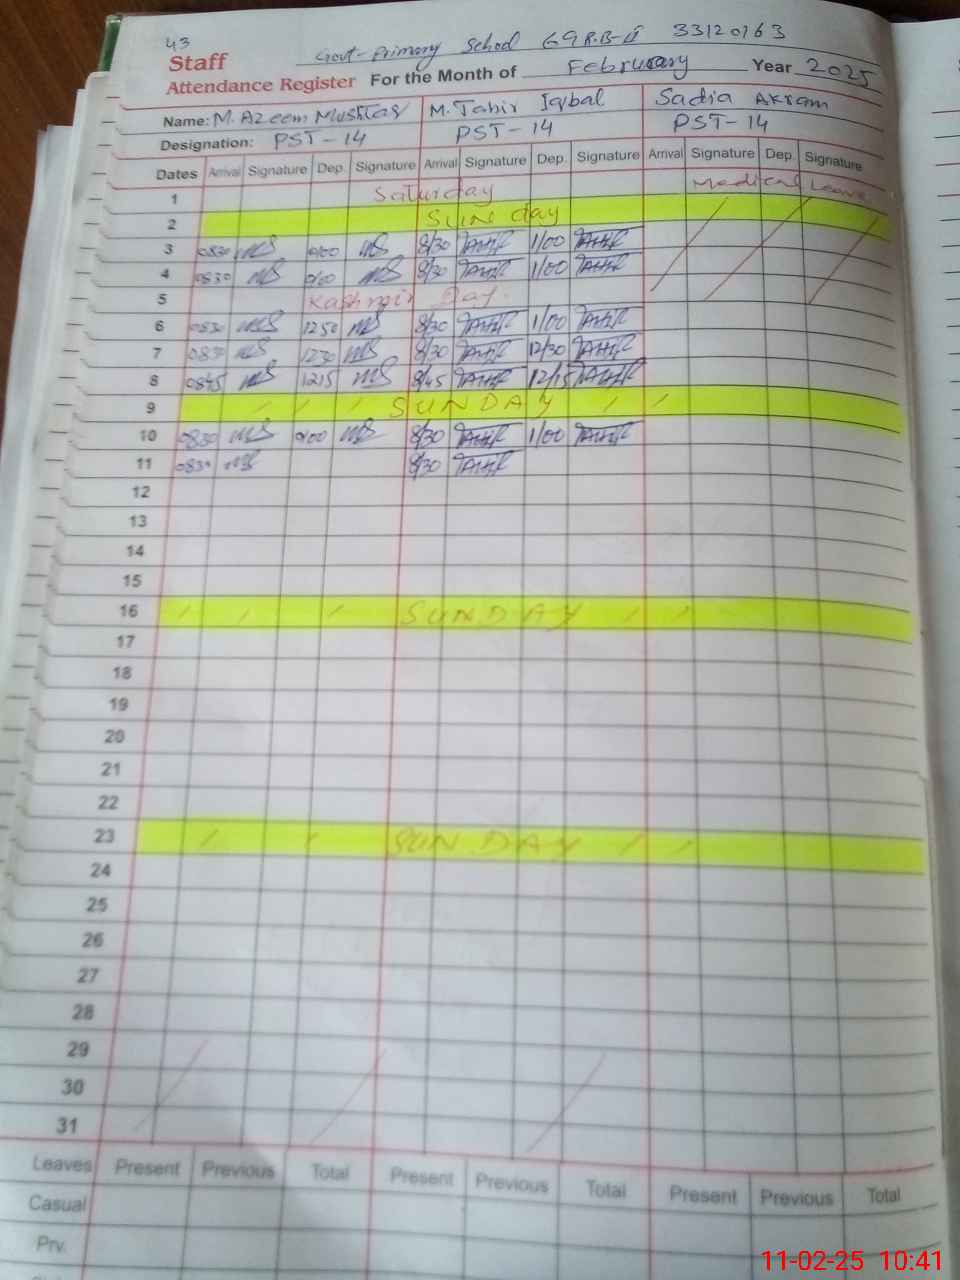 43
Govt- Primary School 69 R.B-II 33120163
Staff
Attendance Register For the Month of February Year 2025
Name: M. Azeem Mushtaq M. Tahir Iqbal Sadia Akram
Designation: PST-14 PST-14 PST-14
Dates Arrival Signature Dep. Signature Arrival Signature Dep. Signature Arrival Signature Dep. Signature
1 Saturday Medical Leave
2 Sunday
3 0830 MS 0100 MS 8/30 TAHIR 1/00 TAHIR
4 0830 MS 0100 MS 8/30 TAHIR 1/00 TAHIR
5 Kashmir Day.
6 0830 MS 1250 MS 8/30 TAHIR 1/00 TAHIR
7 0830 MS 1230 MS 8/30 TAHIR 12/30 TAHIR
8 0845 MS 1215 MS 8/45 TAHIR 12/15 TAHIR
9 SUNDAY
10 0830 MS 0100 MS 8/30 TAHIR 1/00 TAHIR
11 0830 MS 8/30 TAHIR
12
13
14
15
16 SUNDAY
17
18
19
20
21
22
23 SUNDAY
24
25
26
27
28
29
30
31
Leaves Present Previous Total Present Previous Total Present Previous Total
Casual
Prv.
11-02-25 10:41